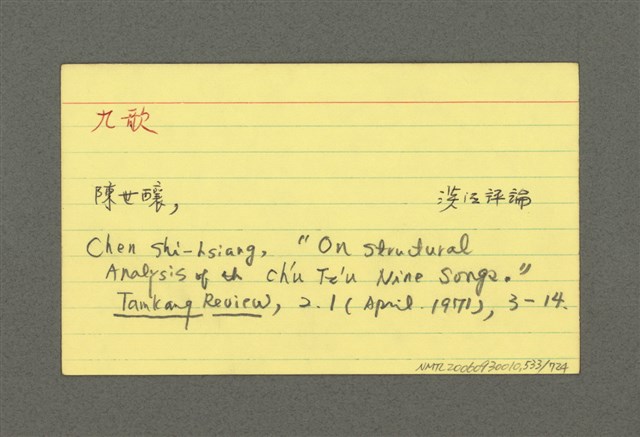 九歌
陳世驤, 淡江評論
Chen Shi-hsiang, "On Structural
Analysis of th Ch'u Tz'u Nine Songs."
Tamkang Review, 2.1 (April 1971), 3-14.
NMTL20060930010,533/724